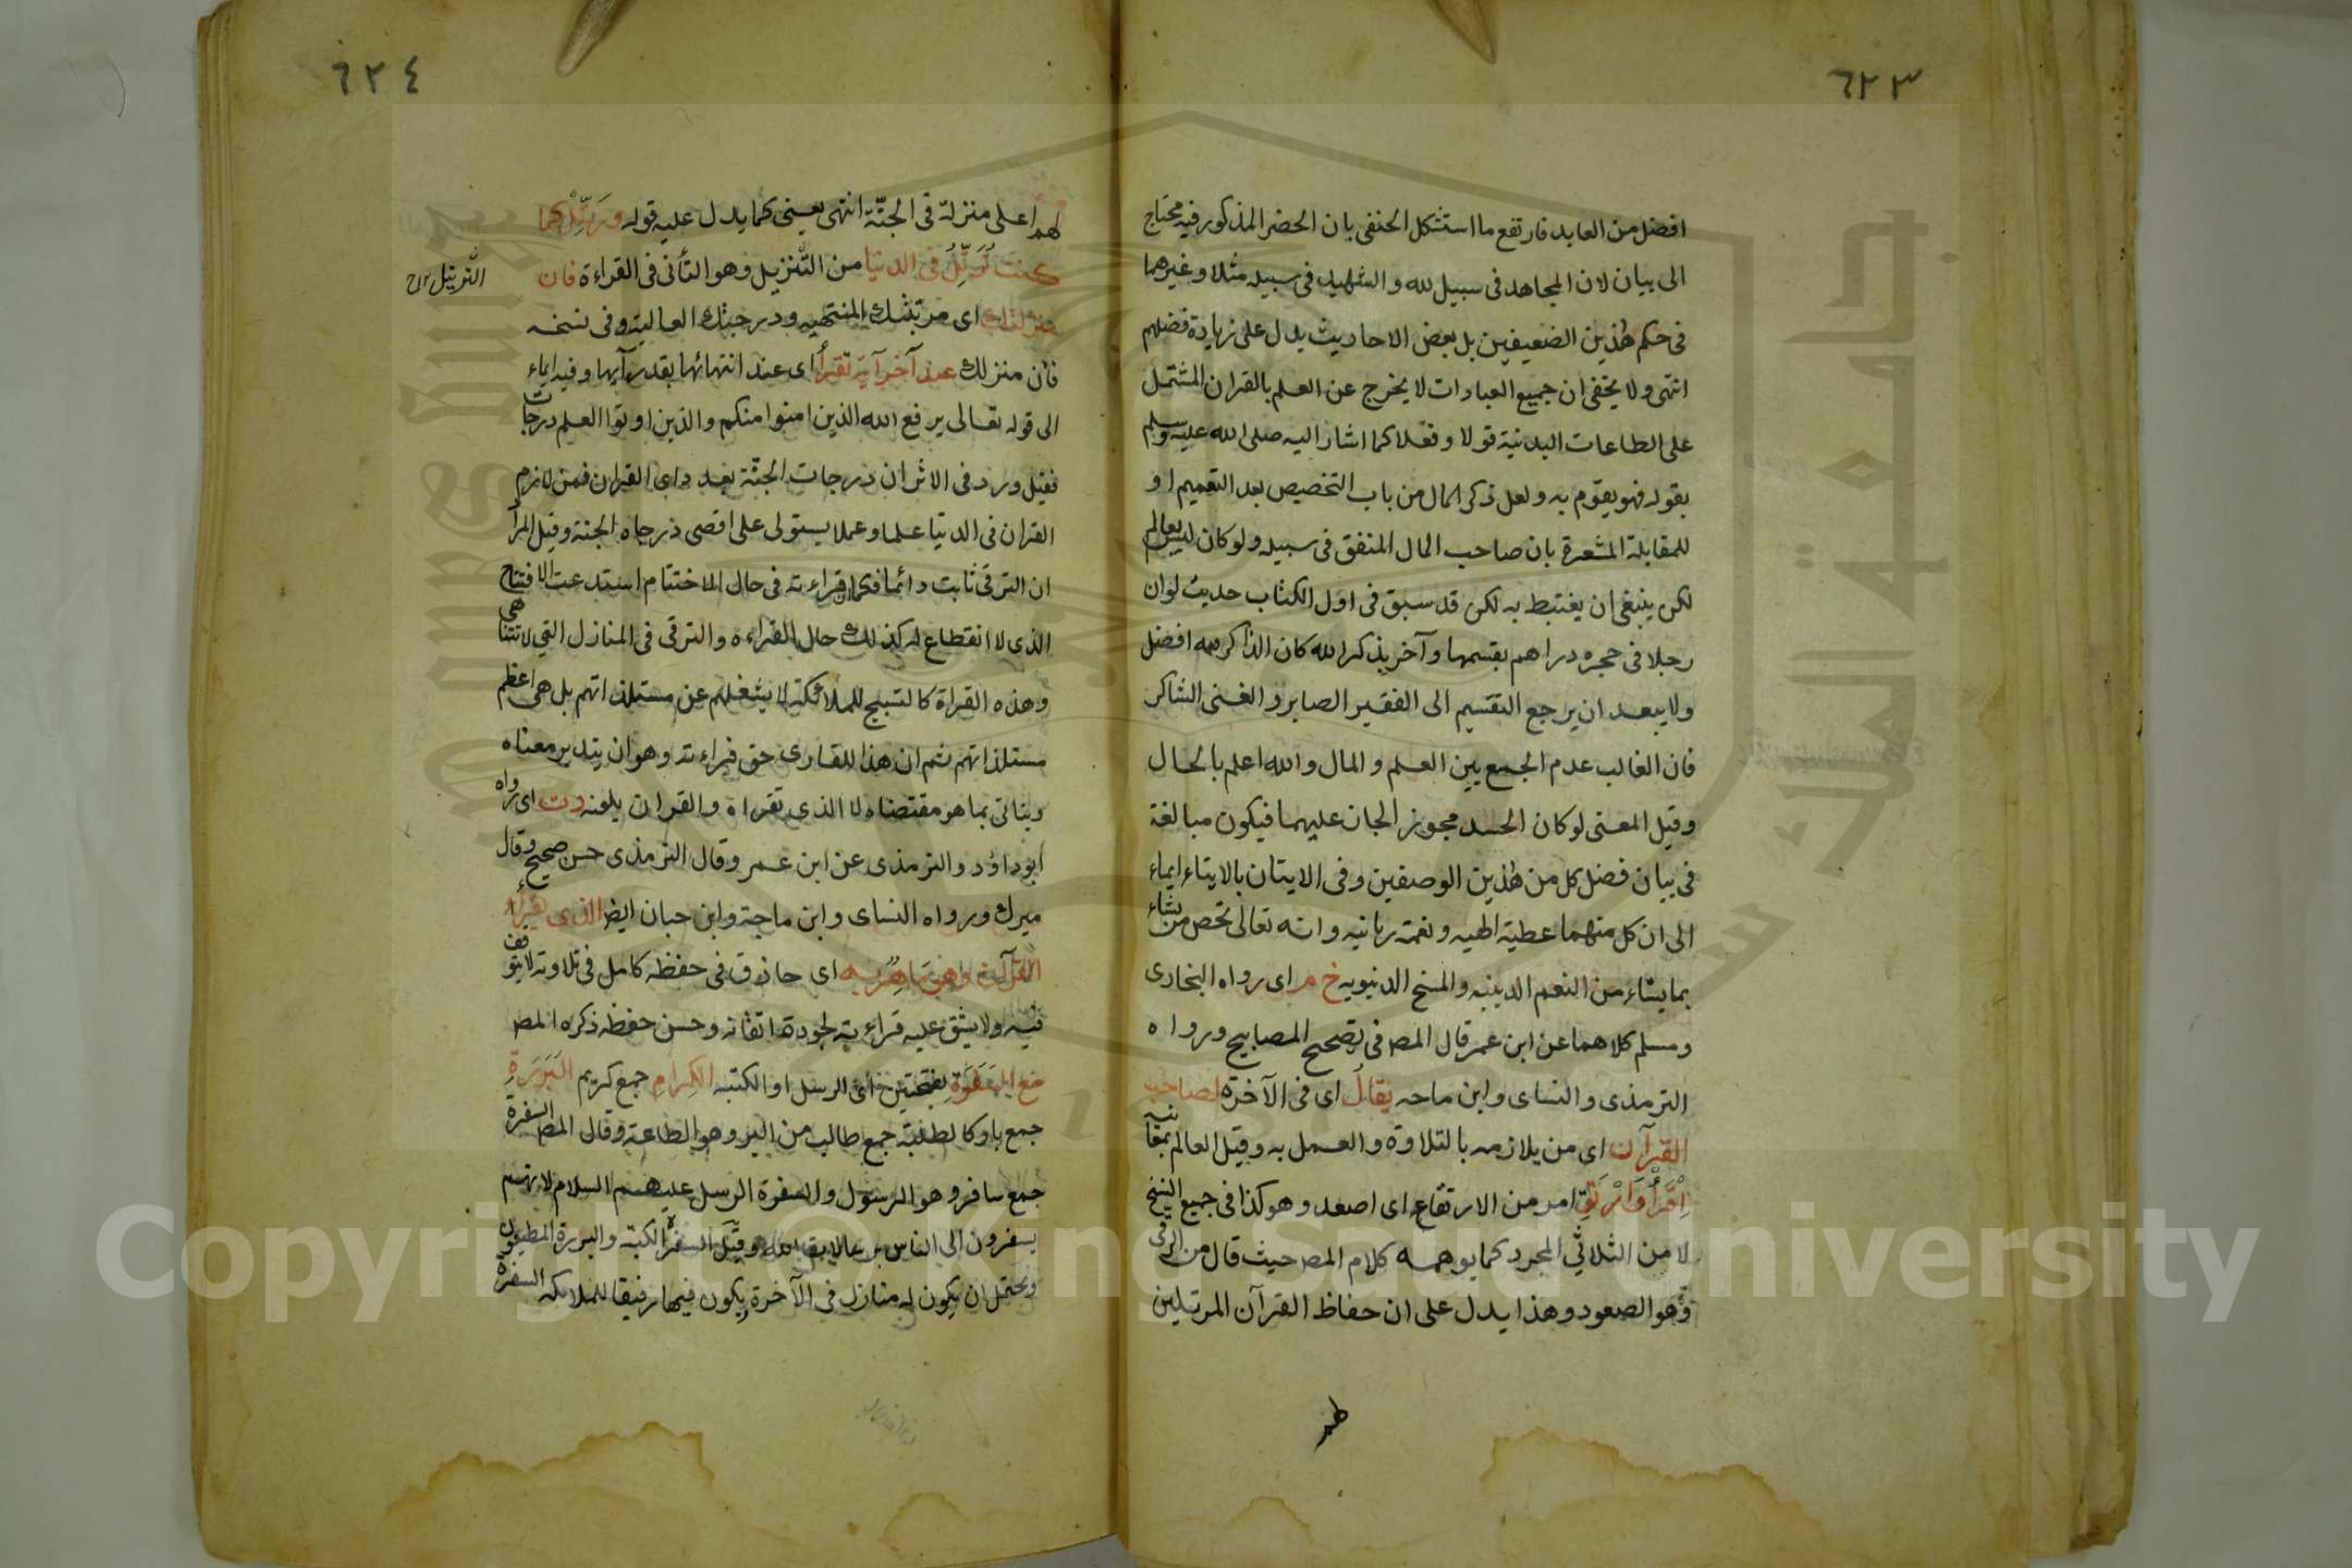 ٦٢٣
افضل من العابد فارتفع ما استشكل الحنفى بان الحضر المذكور فيه محتاج
الى بيان لان المجاهد فى سبيل لله و الشهيد فى سبيله مثلا وغيرهما
فى حكم هٰذين الضعيفين بل بعض الاحاديث يدل على زيادة فضلهم
انتهى ولا يخفى ان جميع العبادات لا يخرج عن العلم بالقران المشتمل
على الطاعات البدنية قولا وفعلا كما اشار اليه صلى الله عليه وسلم
بقوله فهو يقوم به ولعل ذكر المال من باب التخصيص بعد التعميم او
للمقابلة المشعرة بان صاحب المال المنفق فى سبيله ولو كان ليس بعالم
لكن ينبغى ان يغتبط به لكن قد سبق فى اول الكتاب حديث لو ان
رجلا فى حجره دراهم يقسمها وآخر يذكر الله كان الذاكر لله افضل
ولا يبعد ان يرجع التقسيم الى الفقير الصابر و الغنى الشاكر
فان الغالب عدم الجمع بين العلم و المال والله اعلم بالحال
وقيل المعنى لو كان الحسد مجوز الجان عليهما فيكون مبالغة
فى بيان فضل كل من هٰذين الوصفين وفى الايتان بالايتاء ايماء
الى ان كل منهما عطية الهيه و نغمة ربانيه وانه تعالى تخص من يشاء
بما يشاء من النعم الدينيه والمنح الدنيويه خ م اى رواه البخارى
ومسلم كلاهما عن ابن عمر قال المص فى تصحيح المصابيح ورواه
الترمذى والنساى وابن ماحه يقالُ اى فى الآخرة لصاحب
القرآن اى من يلازمه بالتلاوة والعمل به وقيل العالم بمعانيه
اِقْرَأْ وَارْتَقِ امر من الارتقاع اى اصعد وهو كذا فى جميع النسخ
لا من الثلاثي المجرد كما يوهمه كلام المص حيث قال من الرقى
وهو الصعود وهذا يدل على ان حفاظ القرآن المرتلين
٦٢٤
لهم اعلى منزلة فى الجنّة انتهى يعنى كما يدل عليه قوله ورَتِّلْ كما
كنت تُرَتِّلُ فى الدنيا من التّنزيل وهو التأنى فى القراءة فان
الترتيل
منزلتك اى مرتبتك المنتهيه ودرجتك العالية وفى نسخه
فان منزلك عند آخر آية تقرأُ اى عند انتهائها بقدر آيها وفيه ايماء
الى قوله تعالى يرفع الله الذين امنوا منكم والذين اوتوا العلم درجات
فقيل ورد فى الاثر ان درجات الجنّة بعدد اى القران فمن لازم
القران فى الدنيا علما وعملا يستولى على اقصى درجاه الجنة وقيل المراد
ان الترقى ثابت دائما فكما ان قراءته فى حال الاختتام استدعت الافتتاح
الذى لا انقطاع له كذلك حال القراءه والترقى فى المنازل التي لا تتناهى
وهذه القراة كالتسبيح للملائكة لا يشغلهم عن مستلذاتهم بل هى اعظم
مستلذاتهم ثم ان هذا للقارى حق قراءته وهو ان يتدبر معناه
وياتى بما هو مقتضاه لا الذى تقراه والقران يلعنه دت اى رواه
ابو داؤد والترمذى عن ابن عمر وقال الترمذى حسن صحيح وقال
ميرك ورواه النساى وابن ماجة وابن حبان ايضا الذى يقرأُ
القرآن وهو مَاهِرٌ به اى حاذق فى حفظه كامل فى تلاوته لا يتوقف
فيه ولا يشق عليه قراءته لجودة اتقانه وحسن حفظه ذكره المص
مع السَفَرَةِ بفتحتين اى الرسل او الكتبه الكِرامِ جمع كريم البَرَرَةِ
جمع بار كالطلبة جمع طالب من البر وهو الطاعة وقال المص السفرة
جمع سافر وهو الرسول والسفرة الرسل عليهم السلام لانهم
يسفرون الى الناس برسالات الله وقيل السفرة الكتبة والبررة المطيعون
ويحتمل ان يكون له منازل فى الآخرة يكون فيها رفيقا للملائكه السفرة
Copyright © King Saud University